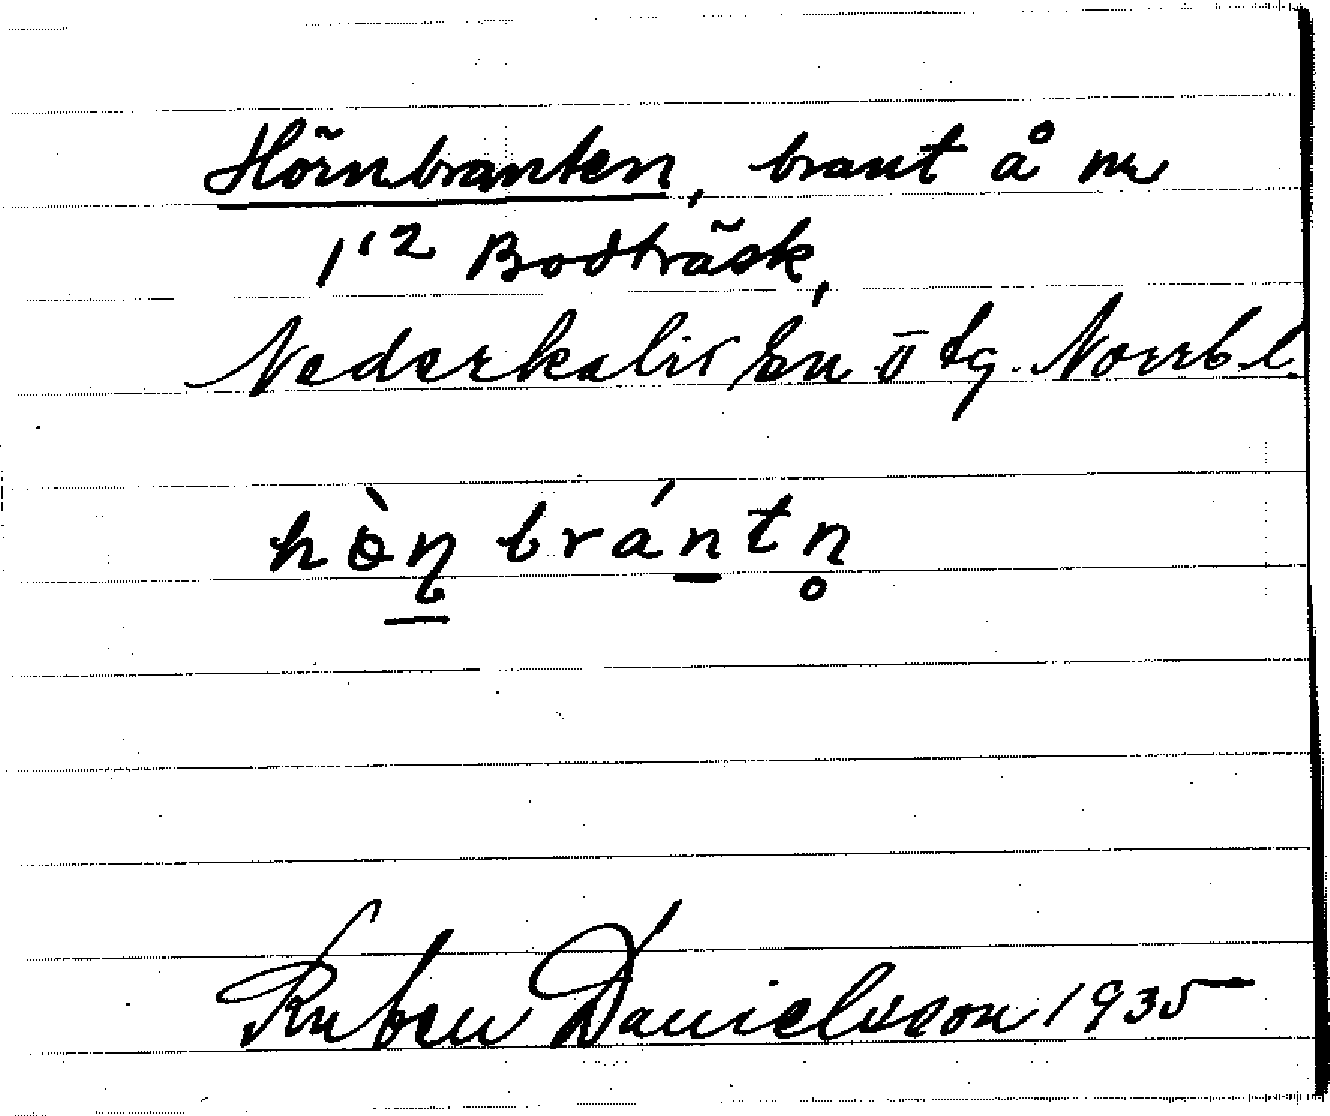 Hörnbranten, brant å m
1¹² Bodträsk,
Nederkalix sn II tg. Norrb. l.
hò̱n brántn̥
Ruben Danielsson 1935